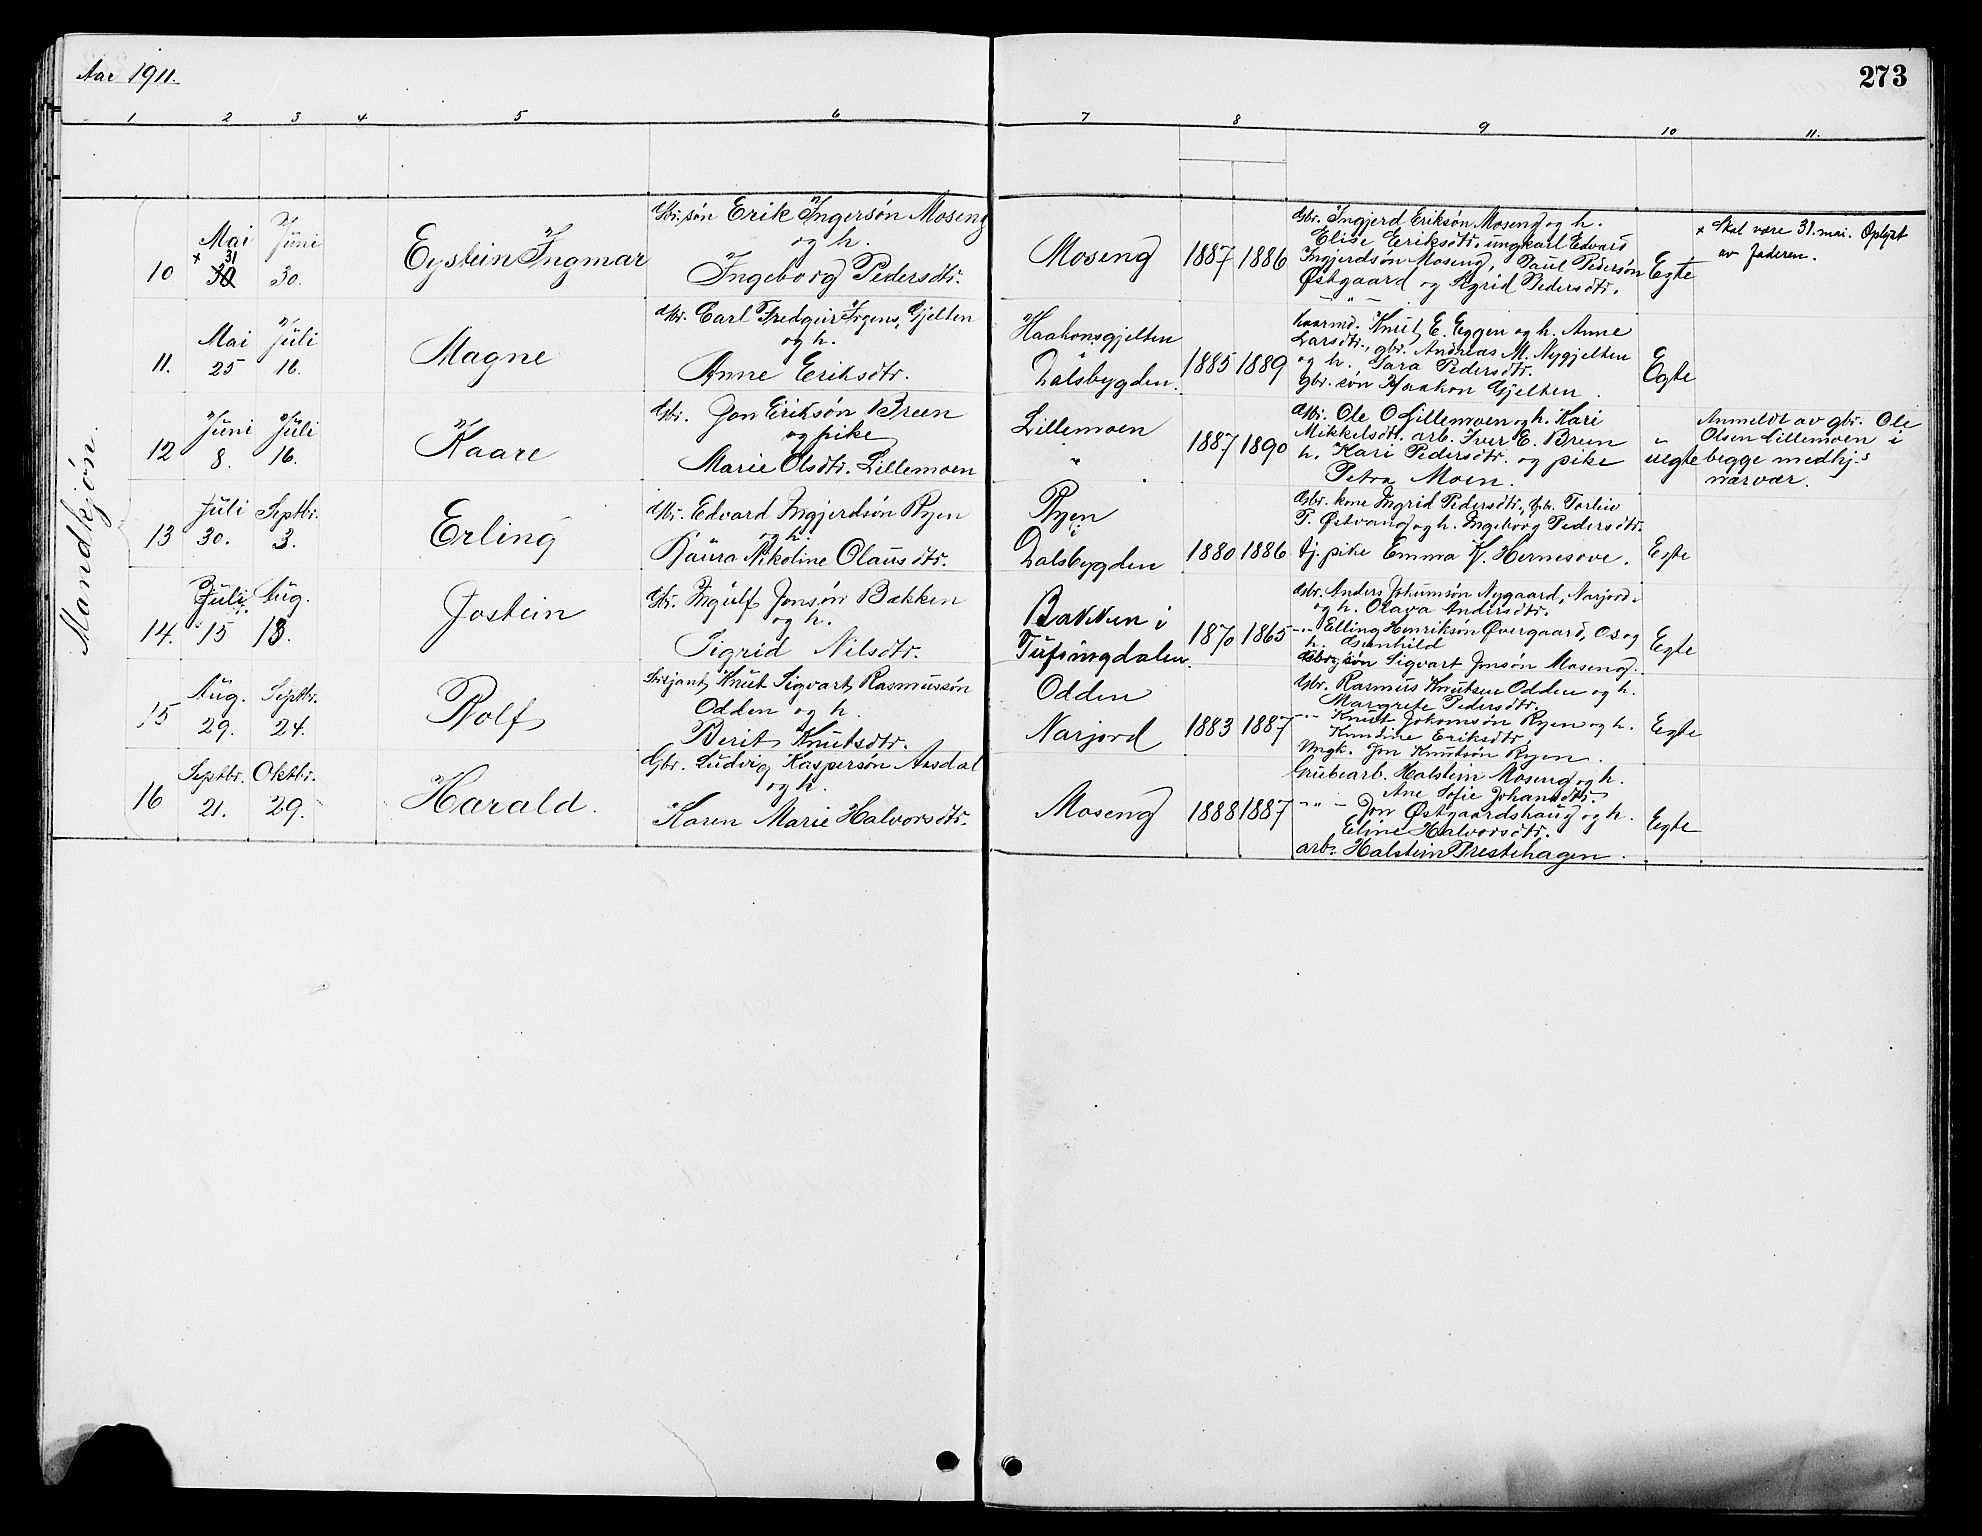 Aar 1911.
273
1 2 3 4 5 6 7 8 9 10 11.
Mandkjøn.
10
Mai
+ 31
30
Juni
30.
Eystein Ingmar
Gbr. søn Erik Ingersøn Moseng
og h.
Ingeborg Pedersdtr.
Moseng
1887 1886
Gbr. Ingjerd Eriksøn Moseng og h.
Elise Eriksdtr. ungkarl Edvard
Ingjerdsøn Moseng, Paul Pedersøn
Østgaard og Sigrid Pedersdtr.
Egte
+ Skal være 31. mai. Oplyst
av faderen.
11.
Mai
25
Juli
16.
Magne
Gbr. Carl Fredgeir Irgens, Gjelten
og h.
Anne Eriksdtr.
Haakonsgjelten
i
Dalsbygden.
1885 1889
Kaarmd. Knut E. Eggen og h. Anne
Larsdtr., gbr. Andreas M. Nygjelten
og h. Sara Pedersdtr.
gbr. søn Haakon Gjelten.
Egte
12
Juni
8.
Juli
16.
Kaare
Gbr. Jon Eriksøn Breen
og pike
Marie Olsdtr. Lillemoen
Lillemoen
"
1887 1890
Gbr. Ole O Lillemoen og h. Kari
Mikkelsdtr. arb. Iver E. Breen
h. Kari Pedersdtr. og pike
Petra Moen.
"
uegte
Anmeldt av gbr. Ole
Olsen Lillemoen i
begge medhj.s
nærvær.
13
Juli
30.
Septbr.
3.
Erling
Gbr. Edvard Ingjerdsøn Ryen
og h.
Laura Nikoline Olausdtr.
Ryen
i
Dalsbygden
1880 1886
Gbr. kone Ingrid Pedersdtr., gbr. Torleiv
P. Østvang og h. Ingeborg Pedersdtr.
tj. pike Emma K. Hernesove.
Egte
14.
Juli
15
Aug.
13.
Jostein
Gbr. Ingulf Jonsøn Bakken
og h.
Sigrid Nilsdtr.
Bakken i
Tufsingdalen.
1870 1865
Gbr. Anders Johansøn Nygaard, Narjord
og h. Olava Andersdtr.
-"- Elling Henriksøn Øvergaard, Os og
h. Gunhild
Gbr. søn Sigvart Jonsøn Moseng.
Egte
15
Aug.
29.
Septbr.
24.
Rolf
Serjant Knut Sigvart Rasmussøn
Odden og h.
Berit Knutsdtr.
Odden
Narjord
1883 1887
Gbr. Rasmus Knutsen Odden og h.
Margrete Pedersdtr.
-"- Knut Johansøn Ryen og h.
Kundine Eriksdtr.
Ungk. Jon Knutsøn Ryen.
Egte
16
Septbr.
21.
Oktbr.
29.
Harald.
Gbr. Ludvig Kaspersøn Aasdal
og h.
Karen Marie Halvorsdtr.
Moseng
1888 1887
Grubearb. Halstein Moseng og h.
Ane Sofie Johansdtr.
-"- Jon Østgaardshaug og h.
Eline Halvorsdtr.
arb. Halstein Prestehagen.
Egte